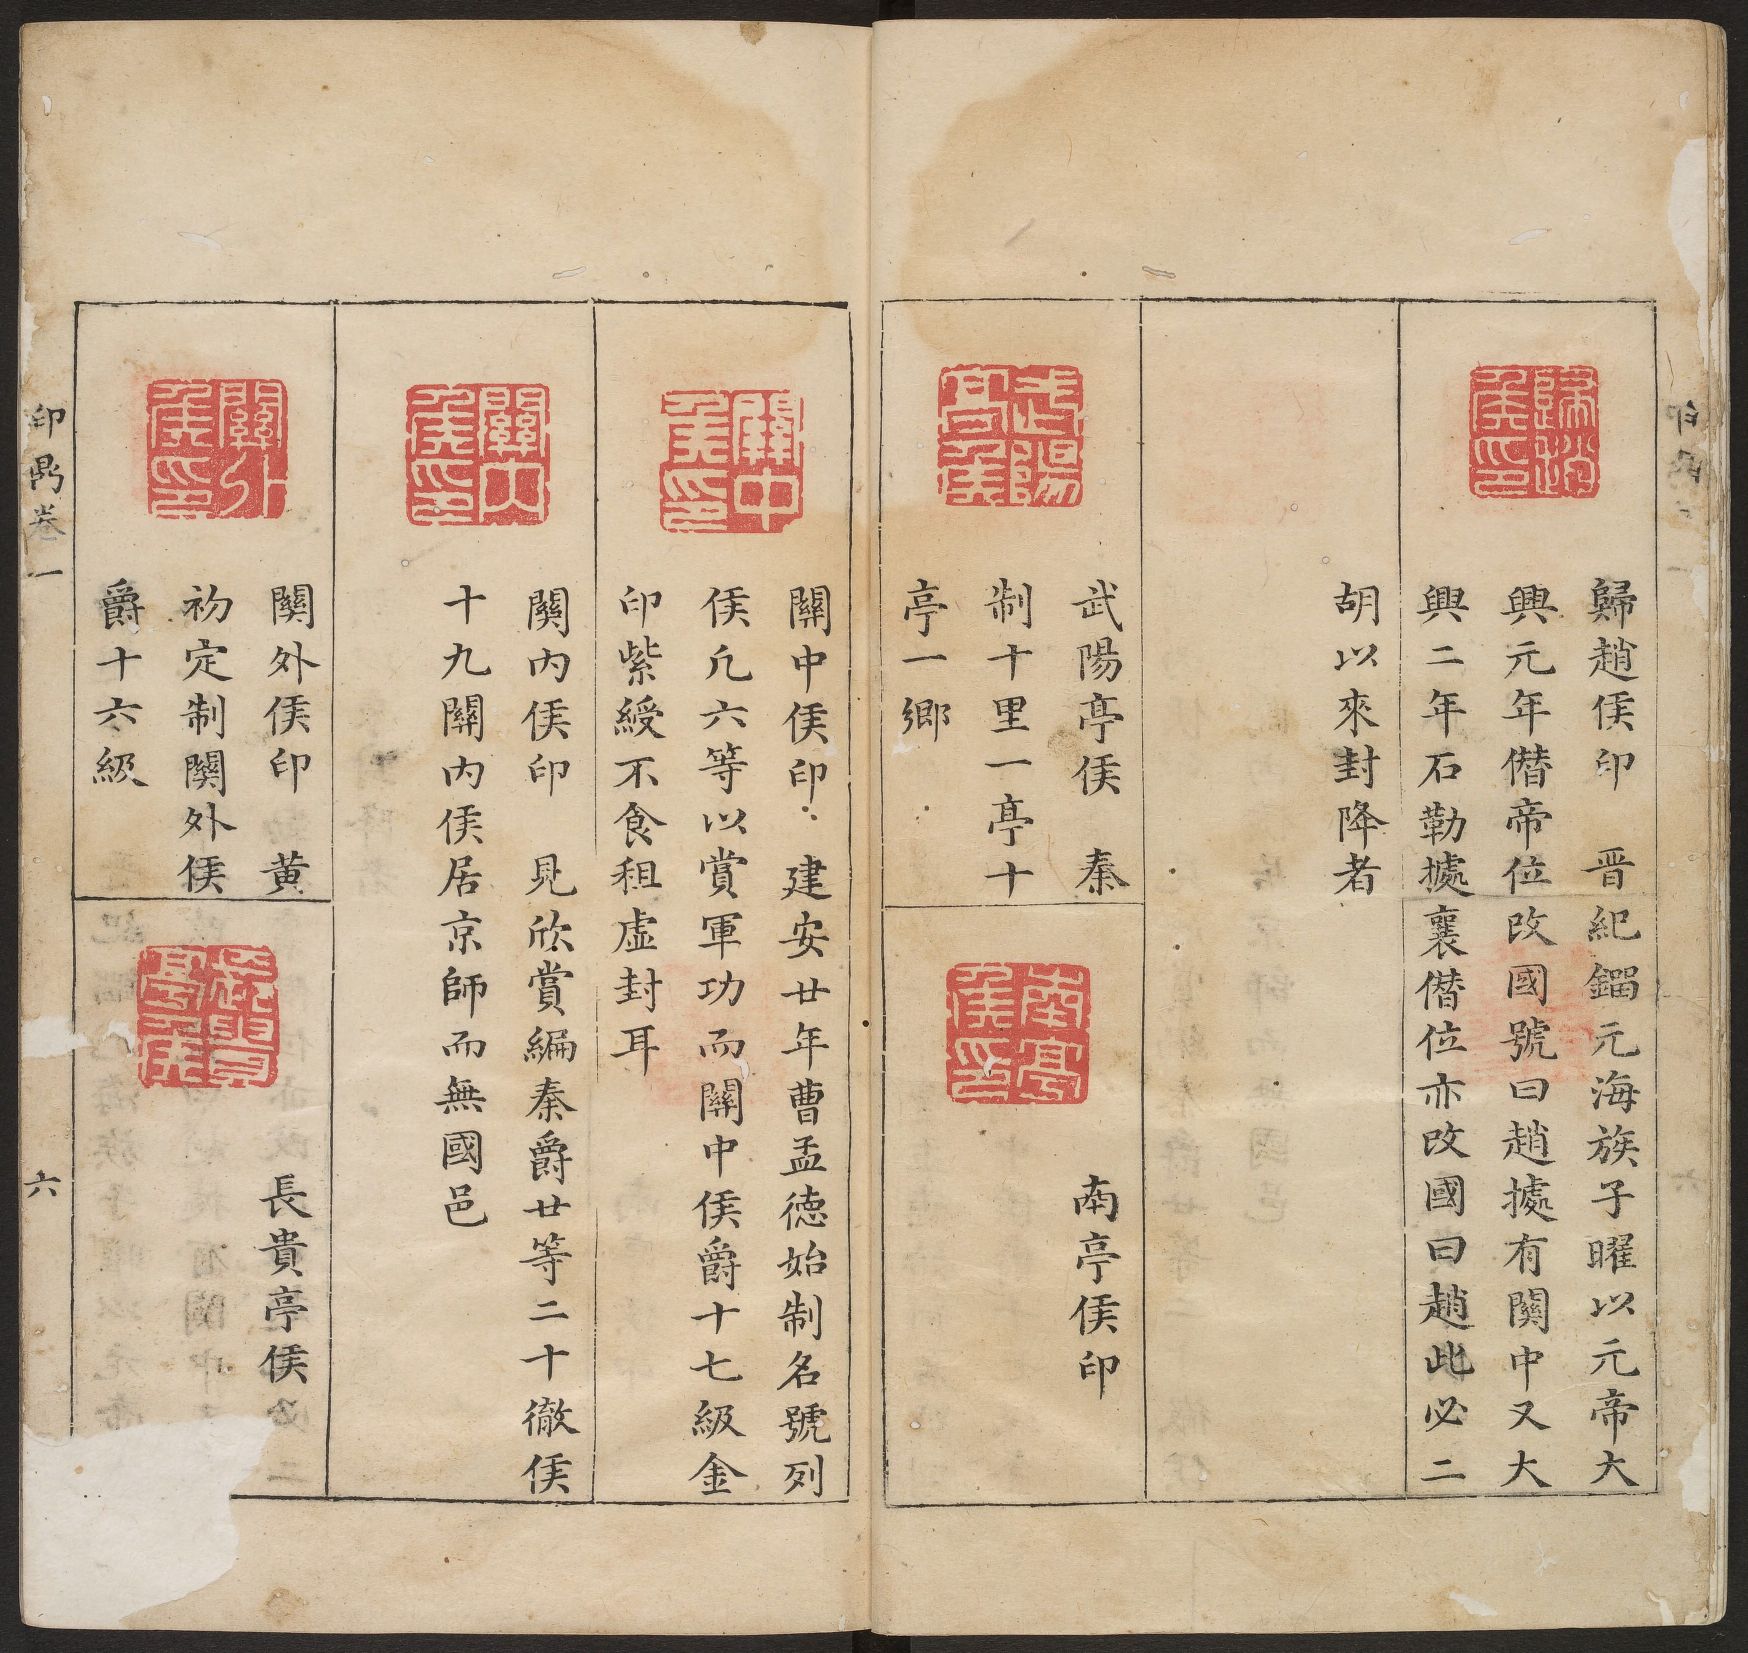 歸趙侯印　晉紀鎦元海族子曜以元帝大
興元年僣帝位改國號曰趙㩀有關中又大
興二年石勒㩀襄僣位亦改國曰趙此必二
胡以來封降者
武陽亭侯　秦
制十里一亭十
亭一鄉
南亭侯印
關中侯印　建安廿年曹孟德始制名號列
侯凡六等以賞軍功而關中侯爵十七級金
印紫綬不食租虛封耳
關內侯印　見欣賞編秦爵廿等二十徹侯
十九關內侯居京師而無國邑
關外侯印　黃
初定制關外侯
爵十六級
長貴亭侯
印鼑卷一
六
歸趙侯印
武陽亭侯
南亭侯印
關中侯印
關內侯印
關外侯印
長貴亭侯